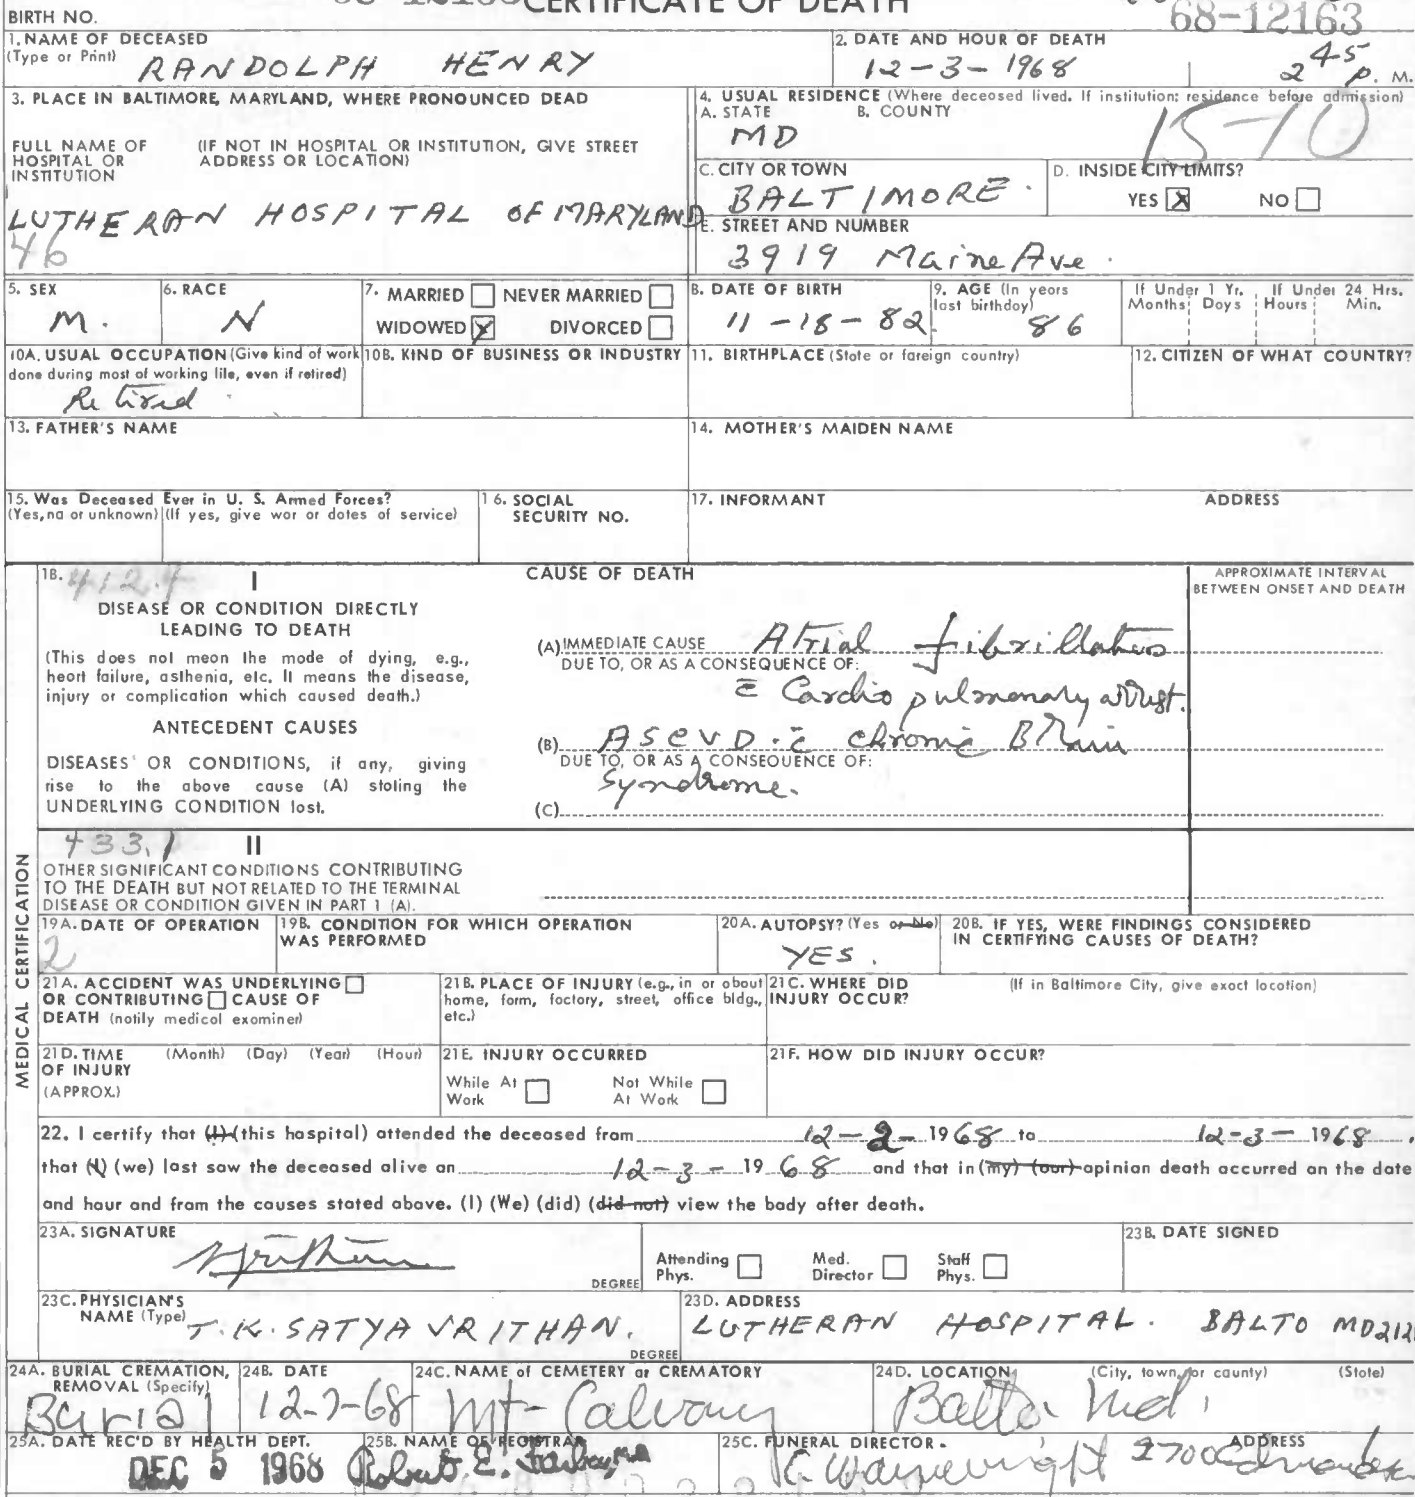 CERTIFICATE OF DEATH
BIRTH NO.
68-12163
1. NAME OF DECEASED
(Type or Print) RANDOLPH HENRY
2. DATE AND HOUR OF DEATH
12-3-1968 2 45 P. M.
3. PLACE IN BALTIMORE, MARYLAND, WHERE PRONOUNCED DEAD
FULL NAME OF HOSPITAL OR INSTITUTION
(IF NOT IN HOSPITAL OR INSTITUTION, GIVE STREET ADDRESS OR LOCATION)
LUTHERAN HOSPITAL OF MARYLAND
46
4. USUAL RESIDENCE (Where deceased lived. If institution: residence before admission)
A. STATE B. COUNTY
MD
15-10
C. CITY OR TOWN
BALTIMORE.
D. INSIDE CITY LIMITS?
YES X NO
E. STREET AND NUMBER
3919 Maine Ave.
5. SEX
M.
6. RACE
N
7. MARRIED NEVER MARRIED
WIDOWED X DIVORCED
8. DATE OF BIRTH
11-18-82.
9. AGE (In years last birthday)
86
If Under 1 Yr. If Under 24 Hrs.
Months Days Hours Min.
10A. USUAL OCCUPATION (Give kind of work done during most of working life, even if retired)
Retired
10B. KIND OF BUSINESS OR INDUSTRY
11. BIRTHPLACE (State or foreign country)
12. CITIZEN OF WHAT COUNTRY?
13. FATHER'S NAME
14. MOTHER'S MAIDEN NAME
15. Was Deceased Ever in U. S. Armed Forces?
(Yes, no or unknown) (If yes, give war or dates of service)
16. SOCIAL SECURITY NO.
17. INFORMANT ADDRESS
MEDICAL CERTIFICATION
18. 412.4 I
CAUSE OF DEATH
APPROXIMATE INTERVAL BETWEEN ONSET AND DEATH
DISEASE OR CONDITION DIRECTLY LEADING TO DEATH
(This does not mean the mode of dying, e.g., heart failure, asthenia, etc. It means the disease, injury or complication which caused death.)
(A) IMMEDIATE CAUSE Atrial fibrillation
DUE TO, OR AS A CONSEQUENCE OF:
c̄ Cardio pulmonary arrest.
ANTECEDENT CAUSES
DISEASES OR CONDITIONS, if any, giving rise to the above cause (A) stating the UNDERLYING CONDITION last.
(B) ASCVD. c̄ chronic Brain
DUE TO, OR AS A CONSEQUENCE OF:
Syndrome.
(C)
433.1 II
OTHER SIGNIFICANT CONDITIONS CONTRIBUTING TO THE DEATH BUT NOT RELATED TO THE TERMINAL DISEASE OR CONDITION GIVEN IN PART 1 (A).
19A. DATE OF OPERATION
2
19B. CONDITION FOR WHICH OPERATION WAS PERFORMED
20A. AUTOPSY? (Yes or No)
YES.
20B. IF YES, WERE FINDINGS CONSIDERED IN CERTIFYING CAUSES OF DEATH?
21A. ACCIDENT WAS UNDERLYING OR CONTRIBUTING CAUSE OF DEATH (notify medical examiner)
21B. PLACE OF INJURY (e.g., in or about home, farm, factory, street, office bldg., etc.)
21C. WHERE DID INJURY OCCUR? (If in Baltimore City, give exact location)
21D. TIME OF INJURY (APPROX.) (Month) (Day) (Year) (Hour)
21E. INJURY OCCURRED
While At Work Not While At Work
21F. HOW DID INJURY OCCUR?
22. I certify that (I) (this hospital) attended the deceased from 12-2-1968 to 12-3-1968,
that (I) (we) last saw the deceased alive on 12-3-1968 and that in (my) (our) opinion death occurred on the date
and hour and from the causes stated above. (I) (We) (did) (did not) view the body after death.
23A. SIGNATURE
DEGREE
Attending Phys. Med. Director Staff Phys.
23B. DATE SIGNED
23C. PHYSICIAN'S NAME (Type) T.K. SATYAVRITHAN.
DEGREE
23D. ADDRESS
LUTHERAN HOSPITAL. BALTO MD 212
24A. BURIAL CREMATION, REMOVAL (Specify)
Burial
24B. DATE
12-7-68
24C. NAME of CEMETERY or CREMATORY
Mt-Calvary
24D. LOCATION (City, town, or county) (State)
Balto Md.
25A. DATE REC'D BY HEALTH DEPT.
DEC 5 1968
25B. NAME OF REGISTRAR
Robert E. Farber
25C. FUNERAL DIRECTOR ADDRESS
2700